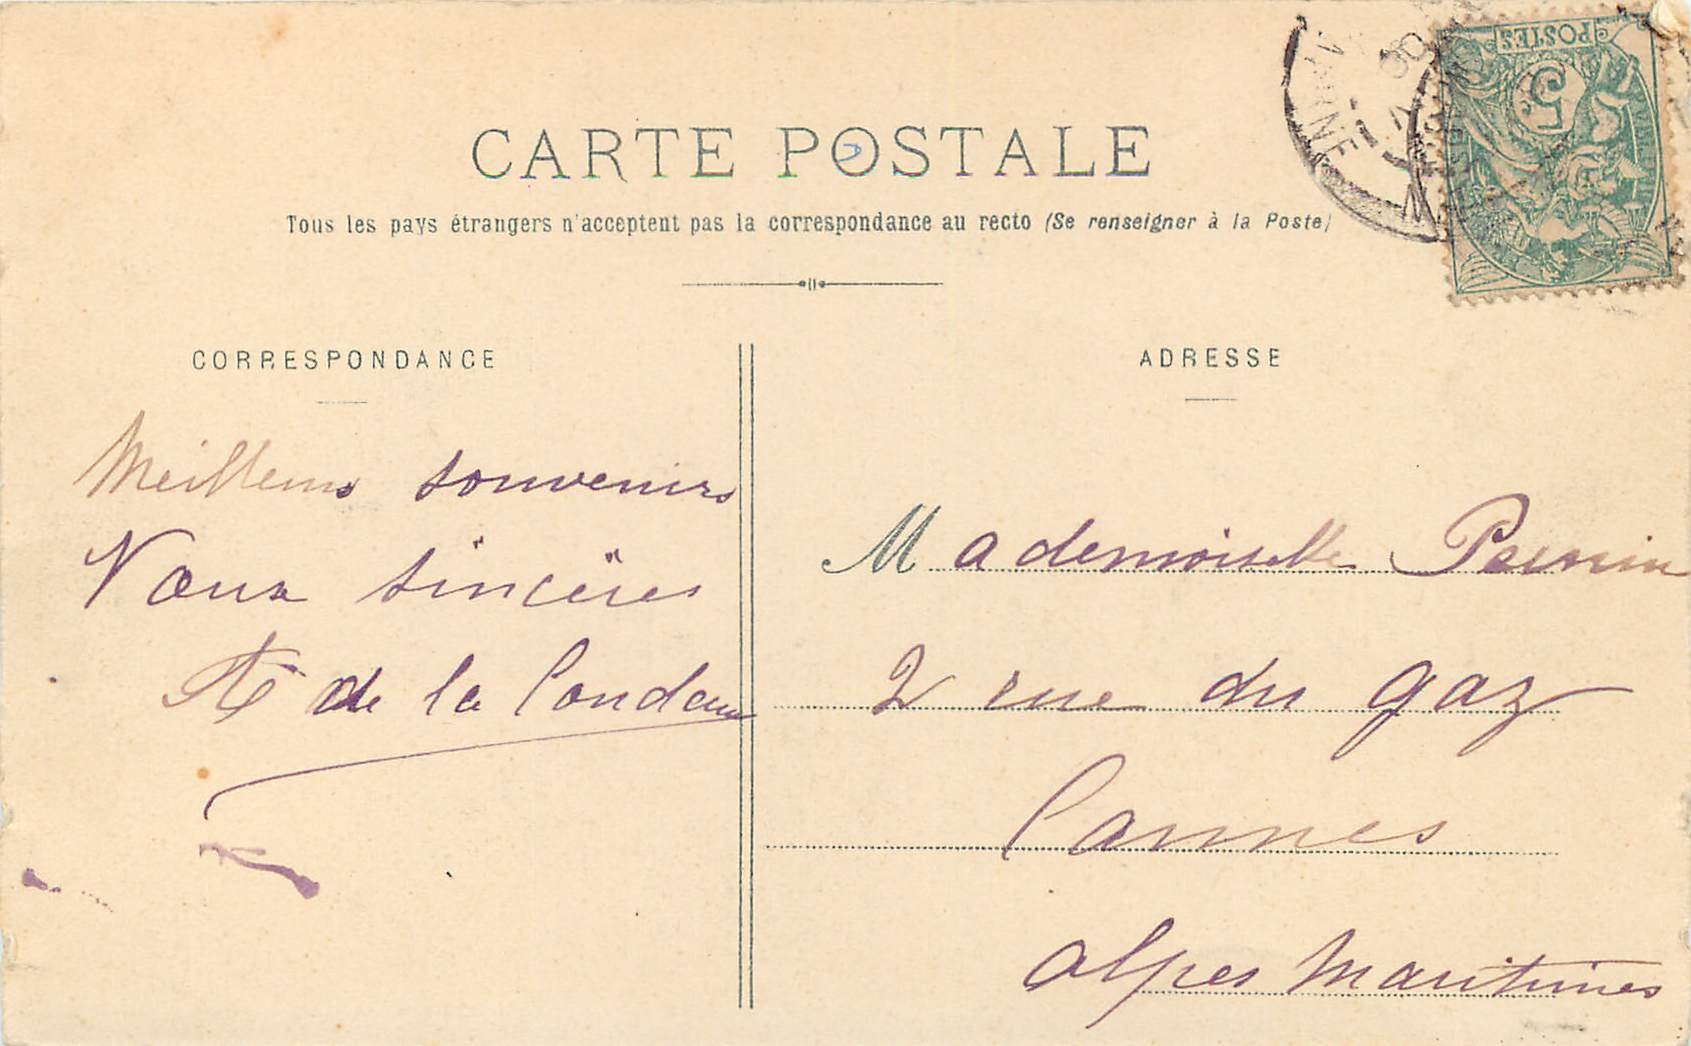 CARTE POSTALE
Tous les pays étrangers n'acceptent pas la correspondance au recto (Se renseigner à la Poste)
CORRESPONDANCE
Meilleurs souvenirs
Vœux sincères
de la
ADRESSE
Mademoiselle Perrin
2 rue du gaz
Cannes
alpes Maritimes
POSTES
5